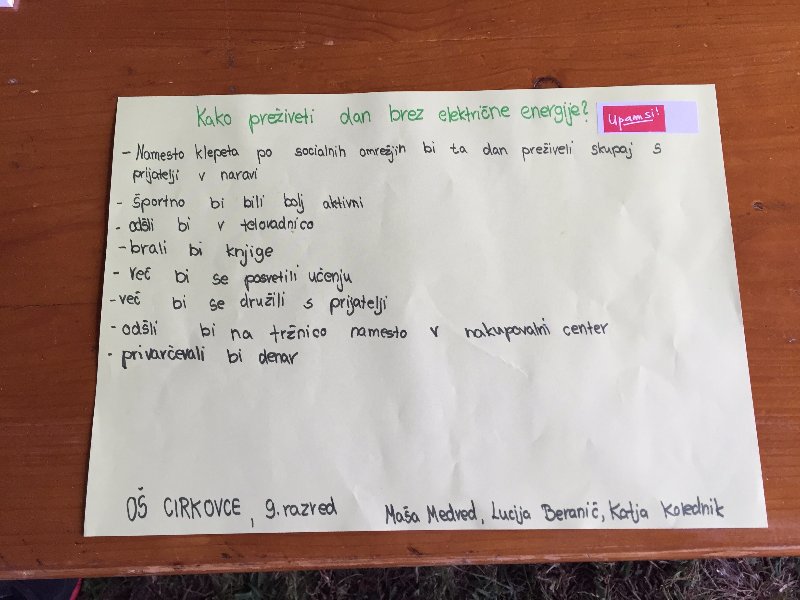 Kako preživeti dan brez električne energije?
Upamsi!
- Namesto klepeta po socialnih omrežjih bi ta dan preživeli skupaj s
prijatelji v naravi
- športno bi bili bolj aktivni
- odšli bi v telovadnico
- brali bi knjige
- več bi se posvetili učenju
- več bi se družili s prijatelji
- odšli bi na tržnico namesto v nakupovalni center
- privarčevali bi denar
OŠ CIRKOVCE, 9. razred
Maša Medved, Lucija Beranič, Katja Kolednik